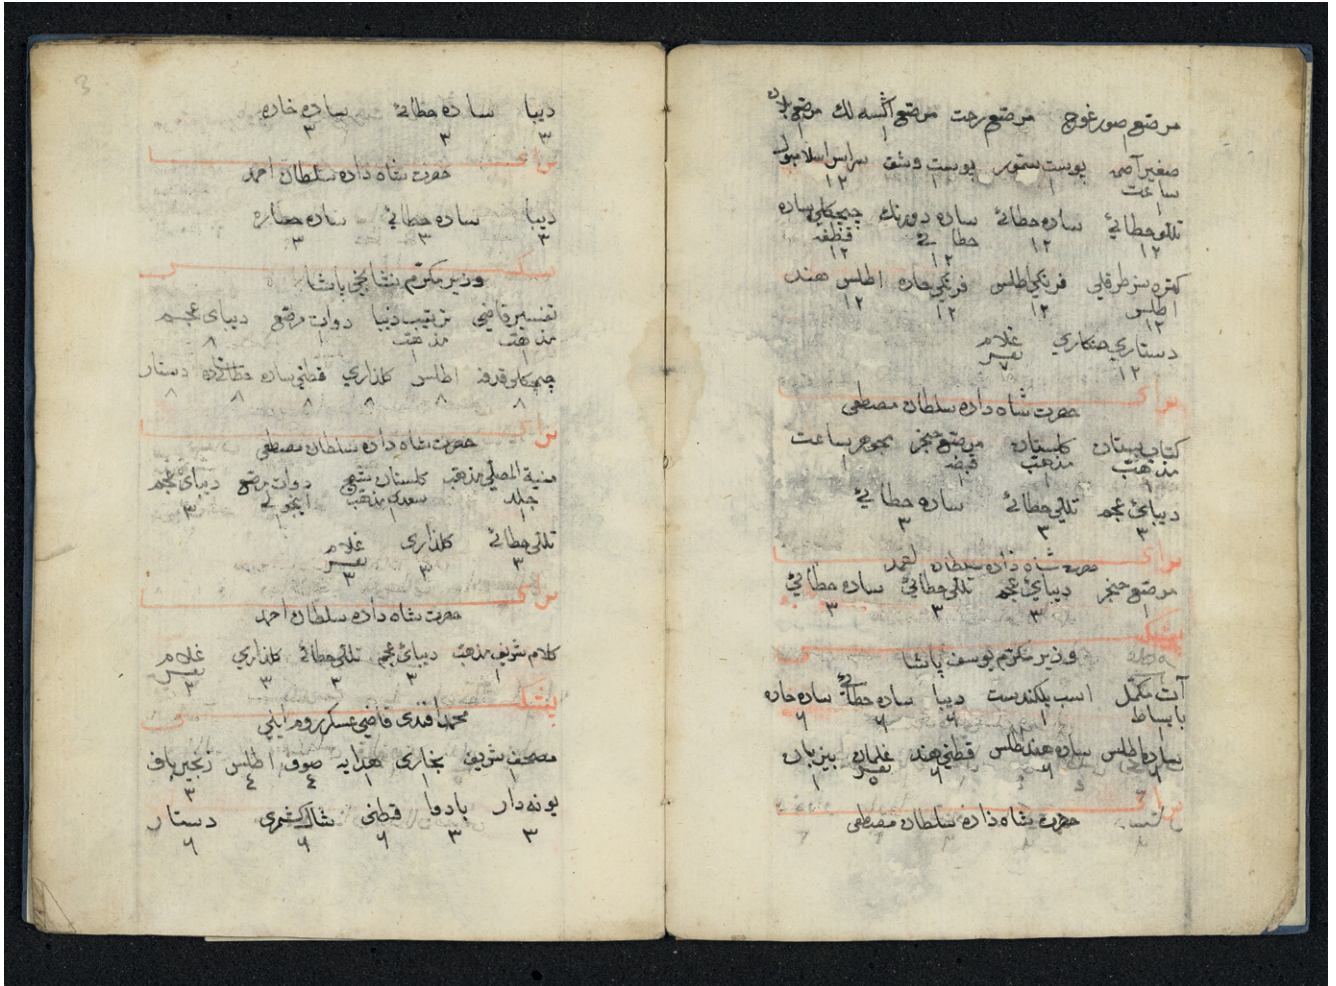 مرصع صورغوج مرصع رخت مرصع اكسه لك مرصع
١ ١
صغير آصى پوست سمور پوست وشق سراسر اسلامبول
ساعت ١ ١ ١٢
تللى خطائى ساده خطائى ساده دورنك چيچكلى ساده
١٢ ١٢ خطائى قطيفه
١٢ ١٢
اطلس فرنكى اطلس فرنكى خاره اطلس هند
١٢ ١٢ ١٢ ١٢
دستارى غلام
١٢ نفر
براى
حضرت شاه زاده سلطان مصطفى
كتاب بستان كلستان مرصع خنجر مجوهر ساعت
مذهب مذهب قبضه ١
١ ١ ١
ديباى عجم تللى خطائى ساده خطائى
٣ ٣ ٣
براى
حضرت شاه زاده سلطان احمد
مرصع خنجر ديباى عجم تللى خطائى ساده خطائى
١ ٣ ٣ ٣
پيشكش
وزير مكرم يوسف پاشا
آت مكمل اسب يلكندست ديبا ساده خطائى ساده خاره
بابساط ١ ٦ ٦ ٦
ساده اطلس ساده هند اطلس قطنى هند غلمان بيزبان
٦ ٦ ٦ نفر ١
٥
براى
حضرت شاه زاده سلطان مصطفى
3
ديبا ساده خطائى ساده خاره
٣ ٣ ٣
براى
حضرت شاه زاده سلطان احمد
ديبا ساده خطائى ساده خاره
٣ ٣ ٣
پيشكش
وزير مكرم نشانجى پاشا
تفسير قاضى ترتيب دنيا دوات مرصع ديباى عجم
مذهب مذهب ١ ٨
١ ١
چيچكلو اطلس كلذارى قطنى ساده دستار
٨ ٨ ٨ ٨ ٨ ٨
براى
حضرت شاه زاده سلطان مصطفى
منية المصلى مذهب كلستان شيخ دوات مرصع ديباى عجم
جلد سعدى مذهب انجولى ٣
١ ١ ١
تللى خطائى كلذارى غلام
٣ ٣ نفر
٣
براى
حضرت شاه زاده سلطان احمد
كلام شريف مذهب ديباى عجم تللى خطائى كلذارى غلام
١ ٣ ٣ ٣ نفر
٣
پيشكش
محمد افندى قاضى عسكر روم ايلى
مصحف شريف بخارى هدايه صوف اطلس زنجيرباف
١ ١ ١ ٤ ٤ ٣
يونه دار بادوا قطنى شال كشمرى دستار
٣ ٣ ٦ ٦ ٦